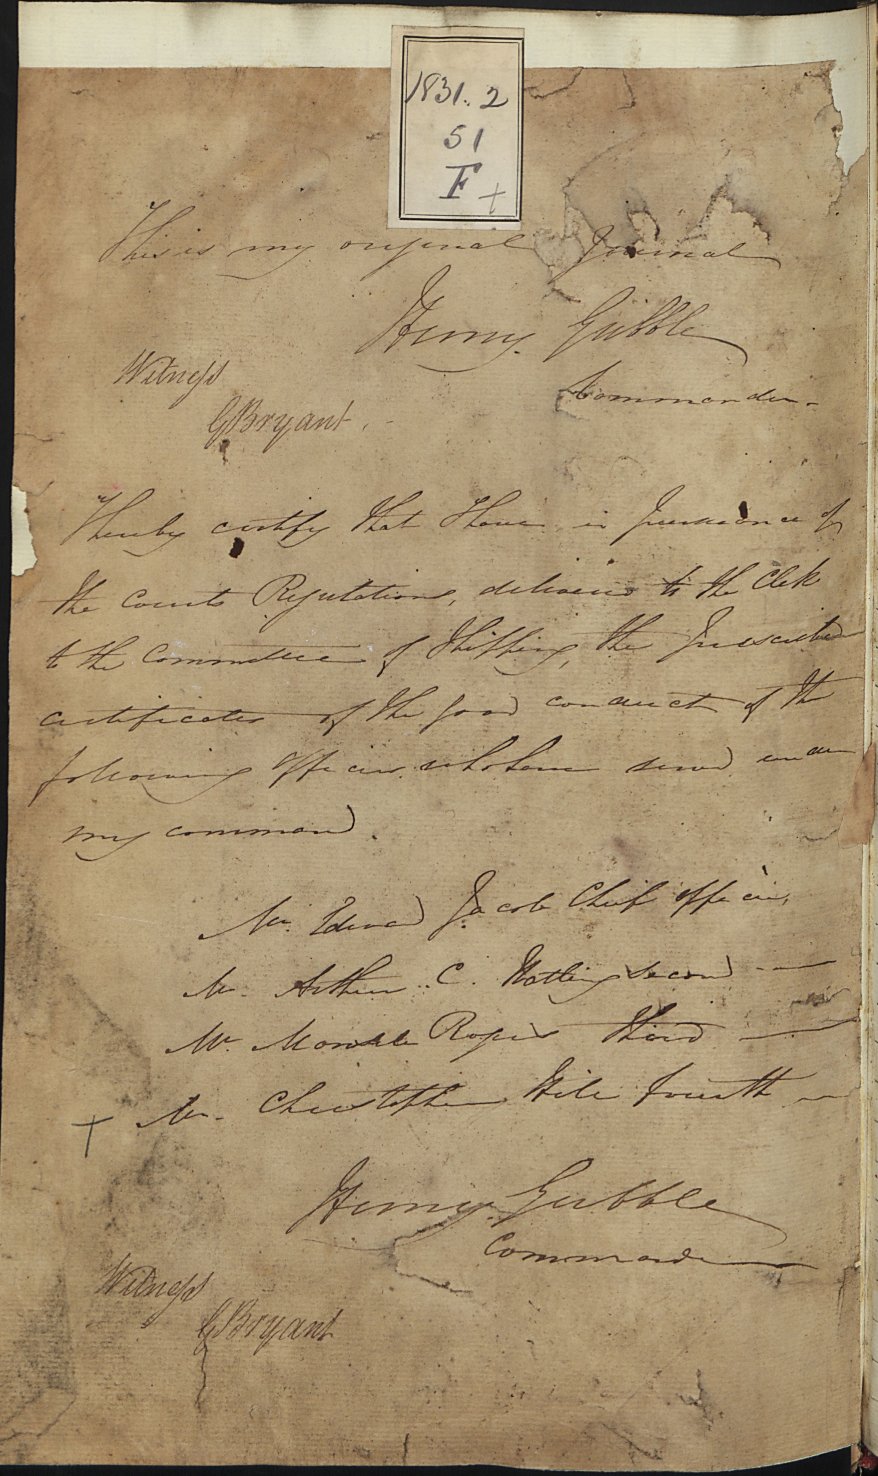 1831.2
51
F +
This is my original Journal
Henry Gribble
Commander
Witness
GBryant
I hereby certify that I have in pursuance of
the Courts Regulations, delivered to the Clerk
to the Committee of Shipping, the prescribed
certificates of the good conduct of the
following officers who have served under
my command.
Mr. Edward Jacob Chief officer,
Mr. Arthur C. Watling second —
Mr. Roper Third —
+ Mr. Christopher Hile fourth —
Henry Gribble
Commander
Witness
GBryant